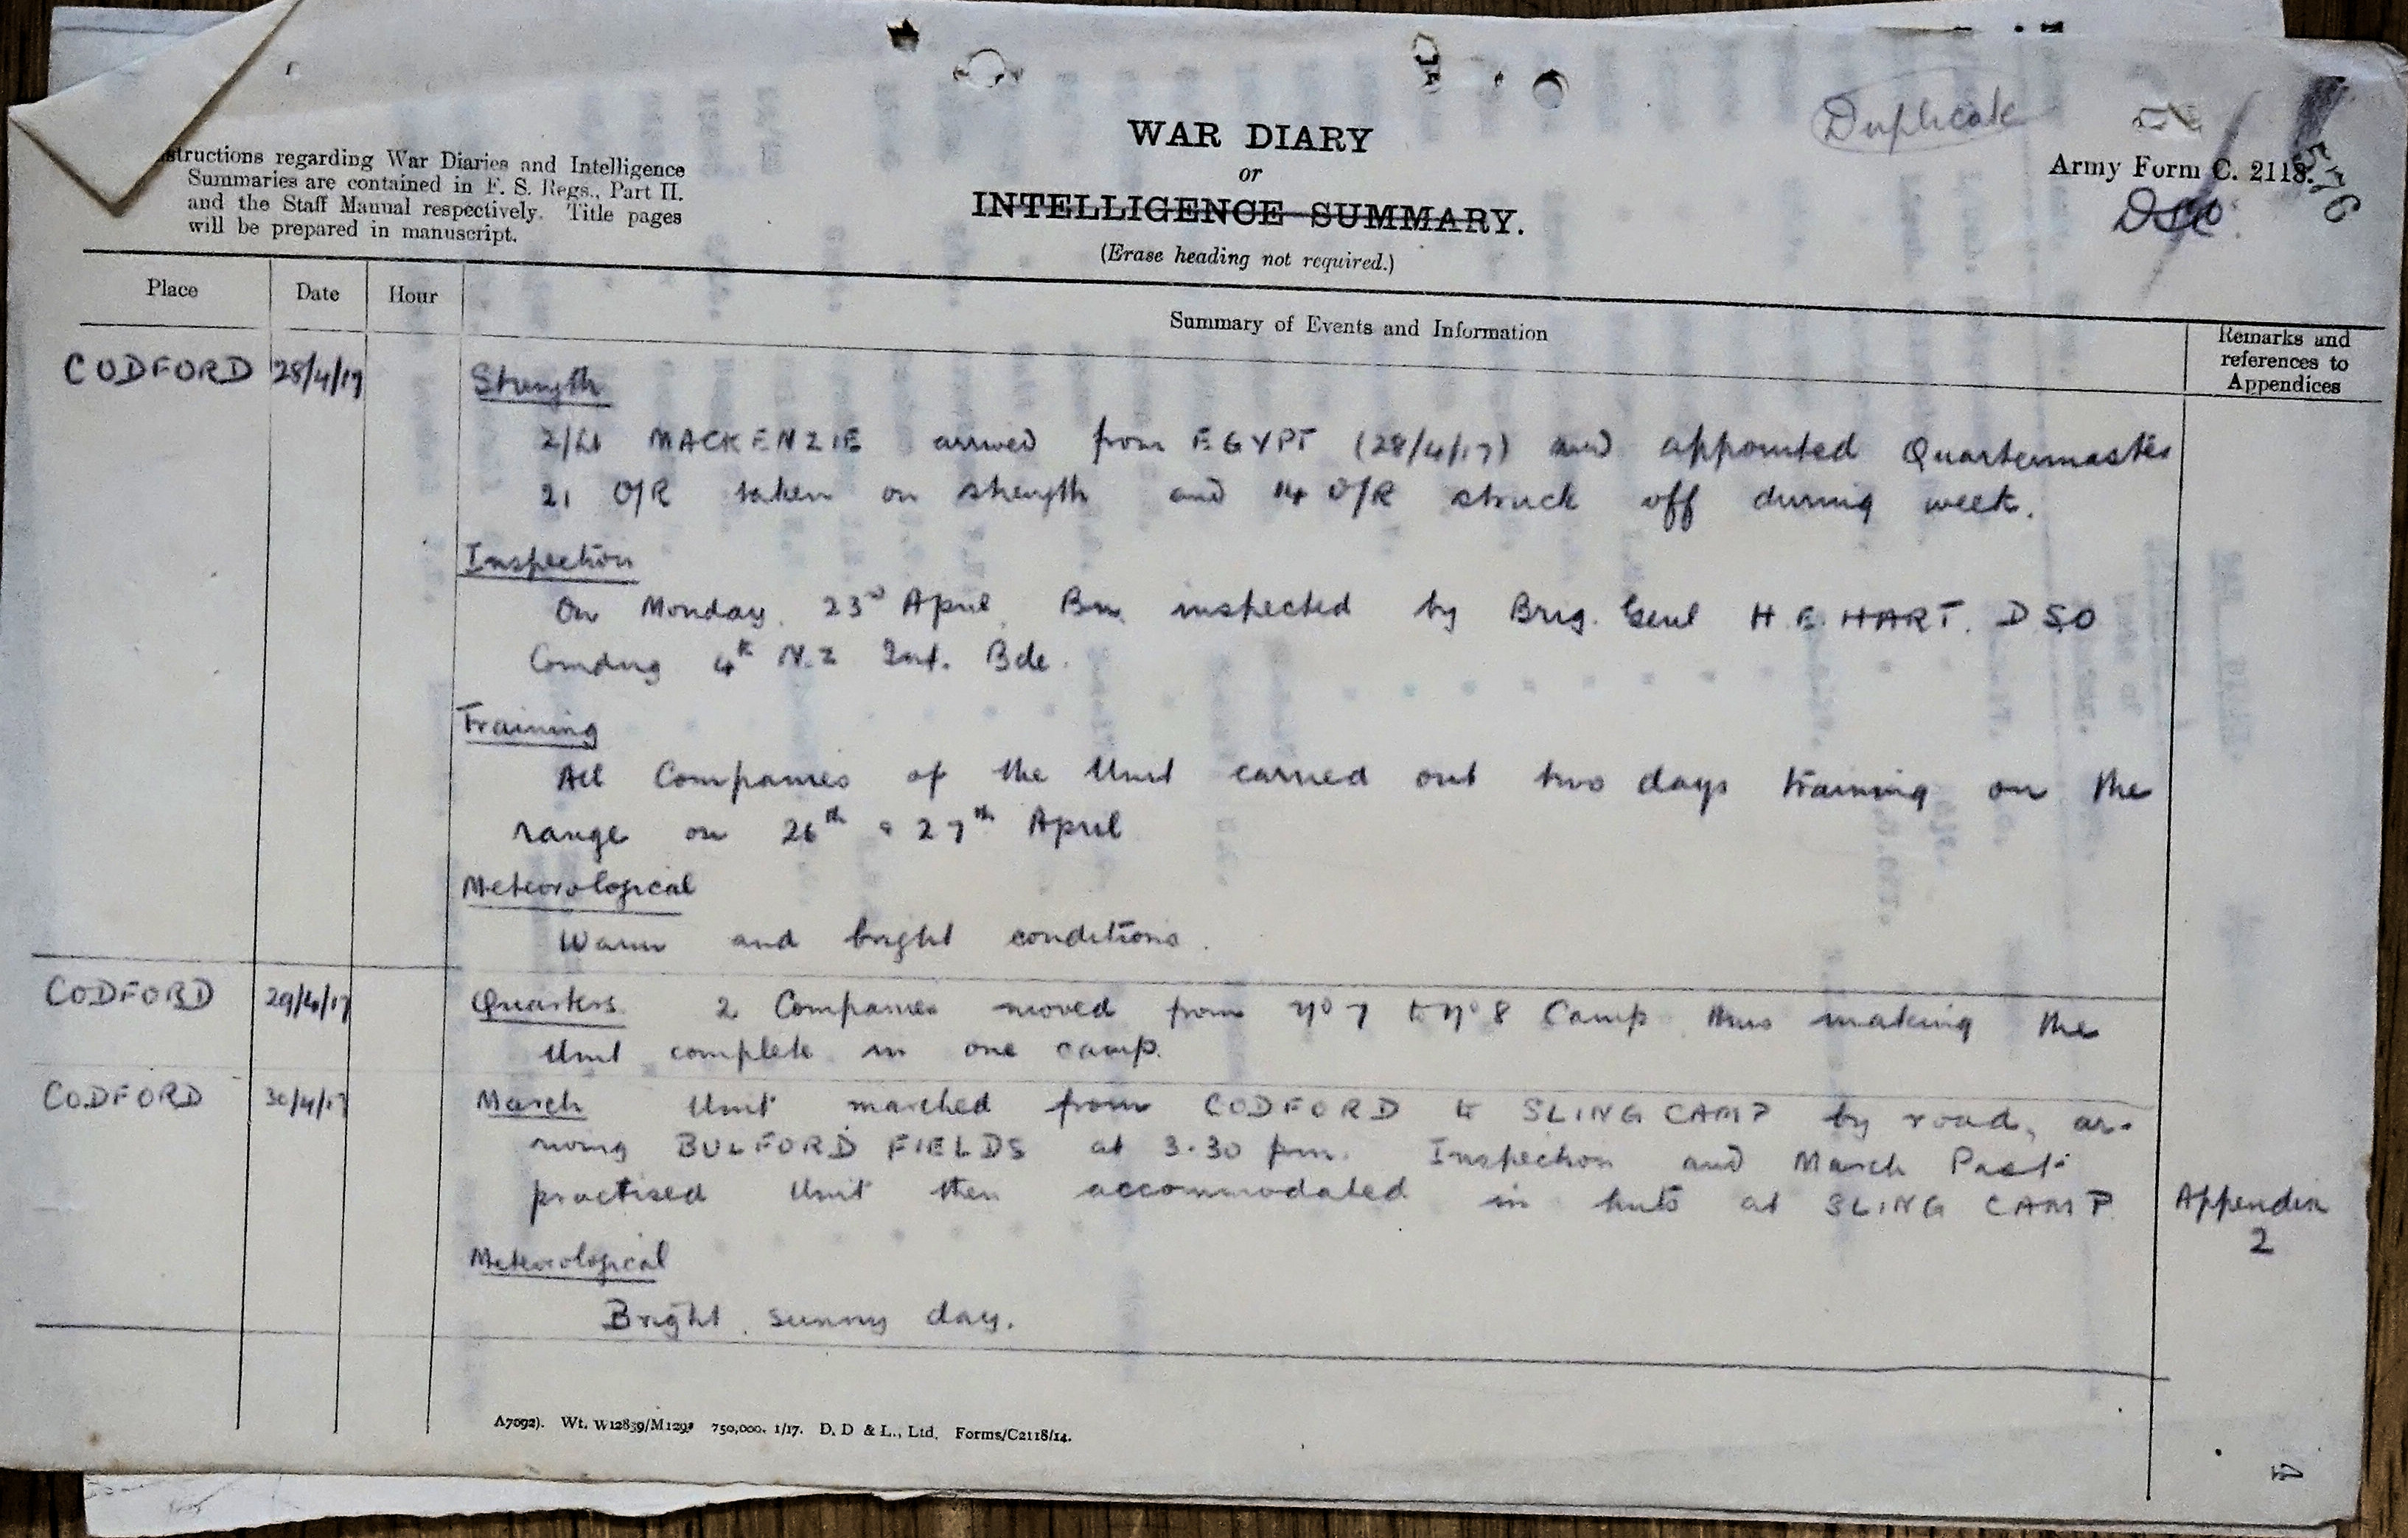 Duplicate
Army Form C. 2118.
576
WAR DIARY
or
INTELLIGENCE SUMMARY.
(Erase heading not required.)
structions regarding War Diaries and Intelligence
Summaries are contained in F. S. Regs., Part II.
and the Staff Manual respectively. Title pages
will be prepared in manuscript.
Place Date Hour Summary of Events and Information Remarks and
references to
Appendices
CODFORD 28/4/17 Strength
2/Lt MACKENZIE arrived from EGYPT (28/4/17) and appointed Quartermaster
21 O/R taken on strength and 14 O/R struck off during week.
Inspection
On Monday. 23rd April. Bn. inspected by Brig. Genl H.E. HART. DSO
Comdng 4th N.Z Inf. Bde.
Training
All Companies of the Unit carried out two days training on the
range on 26th & 27th April
Meteorological
Warm and bright conditions.
CODFORD 29/4/17 Quarters. 2 Companies moved from No 7 to No 8 Camp thus making the
Unit complete in one camp.
CODFORD 30/4/17 March Unit marched from CODFORD to SLING CAMP by road, ar-
riving BULFORD FIELDS at 3.30 pm. Inspection and March Past
practised Unit then accommodated in huts at SLING CAMP. Appendix
2
Meteorological
Bright. sunny day.
A7092). Wt. W12839/M1293 750,000. 1/17. D. D & L., Ltd. Forms/C2118/14.